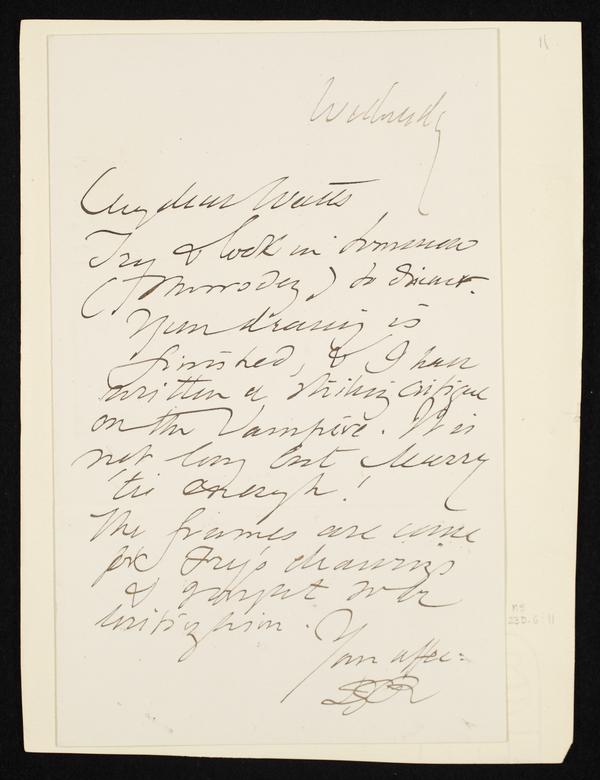 11
Wednesday
My dear Watts
Try & look in tomorrow
(Thursday) to dinner.
Your drawing is
finished, & I have
written a striking critique
on the Vampire. It is
not long but Murry
'tis enough!
The frames are come
for Fry's drawings
&
writing him.
MS
23D.6:11
Your affec:
DGR